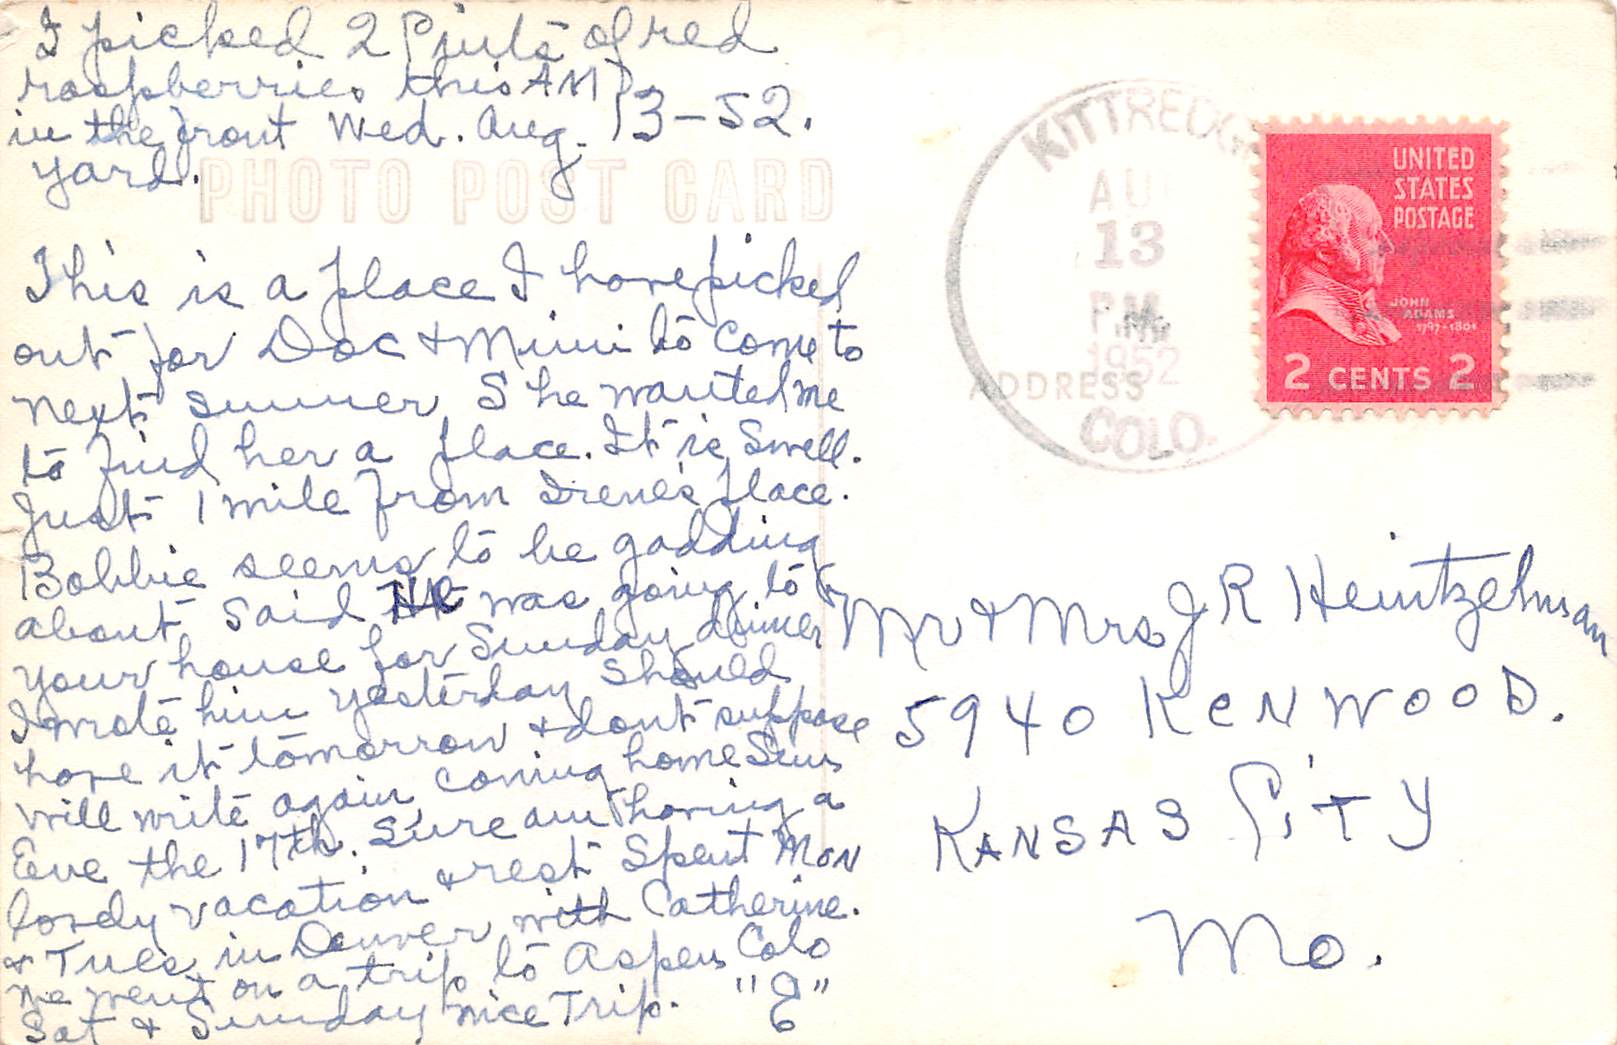 I picked 2 Pints of red
raspberries this AM
in the front Wed. Aug. 13-52.
yard.
PHOTO POST CARD
This is a place I have picked
out for Doc & Mimi to come to
next summer She wanted me
to find her a place. It is Swell.
Just 1 mile from Irene's place.
Bobbie seems to be gadding
about said He was going to
your house for Sunday dinner
I wrote him yesterday should
have it tomorrow & dont suppose
will write again, coming home Sun
Eve the 17th. Sure am having a
lovely vacation & rest Spent Mon
& Tues in Denver with Catherine.
We went on a trip to Aspen Colo
Sat & Sunday nice Trip. "E"
KITTREDGE
AUG
13
P.M.
1952
COLO.
ADDRESS
UNITED
STATES
POSTAGE
JOHN
ADAMS
1797-1801
2 CENTS 2
Mr & Mrs J R Heintzelman
5940 KENWOOD.
KANSAS CITY
Mo.